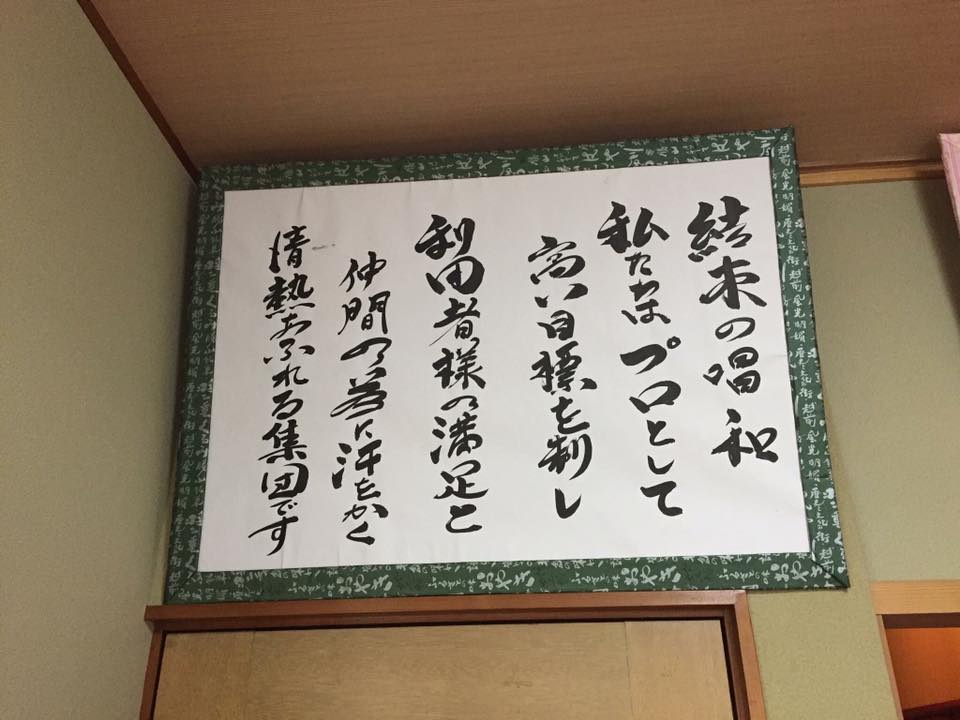 結束の唱和
私たちはプロとして
高い目標を制し
利用者様の満足と
仲間の為に汗をかく
情熱あふれる集団です